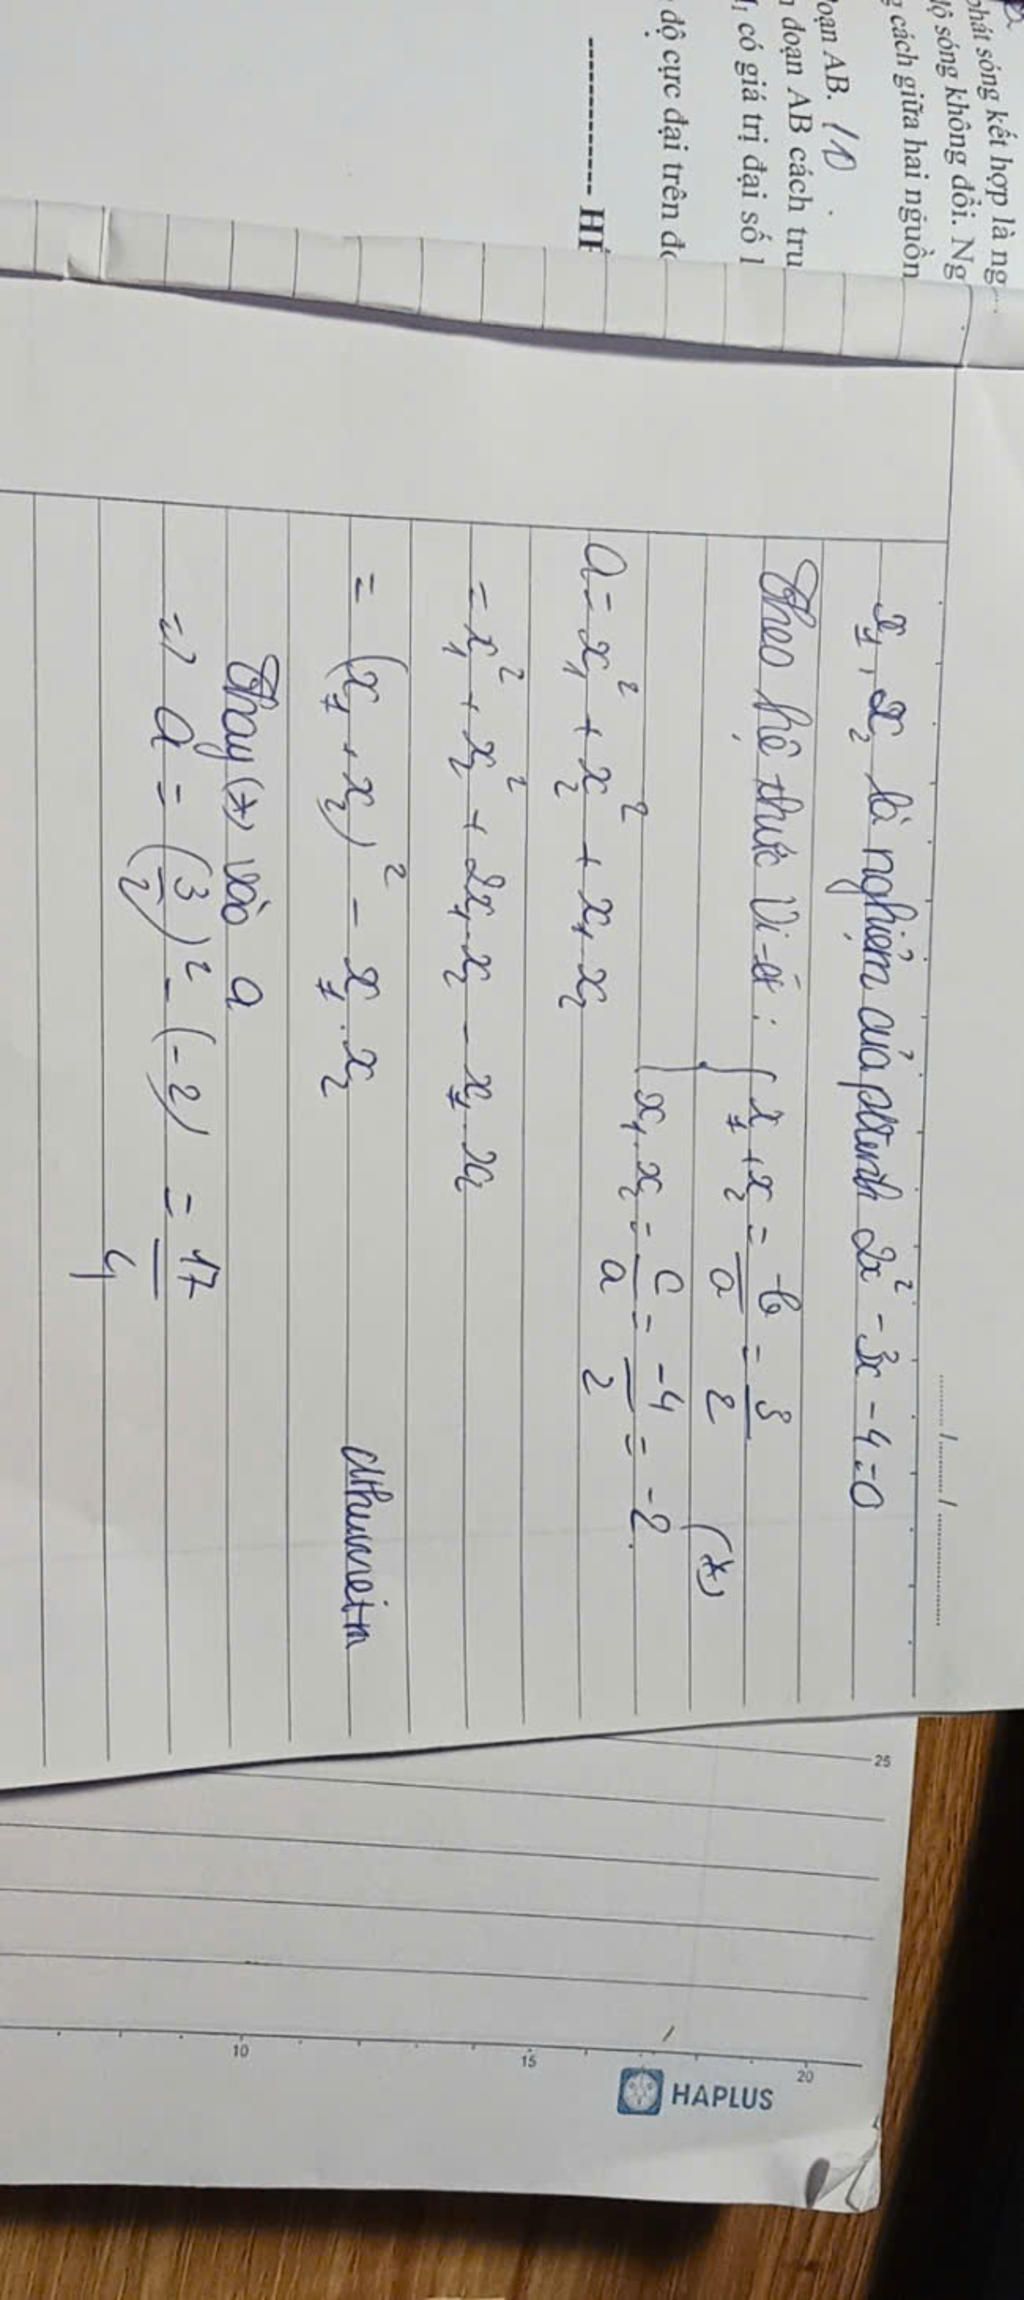 phát sóng kết hợp là ng
độ sóng không đổi. Ng
cách giữa hai nguồn
đoạn AB. 10
đoạn AB cách tru
có giá trị đại số 1
độ cực đại trên đo
------------ HẾ
........ / ........ / ................
x₁, x₂ là nghiệm của ptrình 2x² - 3x - 4 = 0
Theo hệ thức Vi-ét : { x₁ + x₂ = -b/a = 3/2
(*)
x₁.x₂ = c/a = -4/2 = -2.
a = x₁² + x₂² + x₁.x₂
= x₁² + x₂² + 2x₁.x₂ - x₁.x₂
= (x₁ + x₂)² - x₁.x₂
Thay (*) vào a
=> a = (3/2)² - (-2) = 17/4
25
20
15
10
HAPLUS